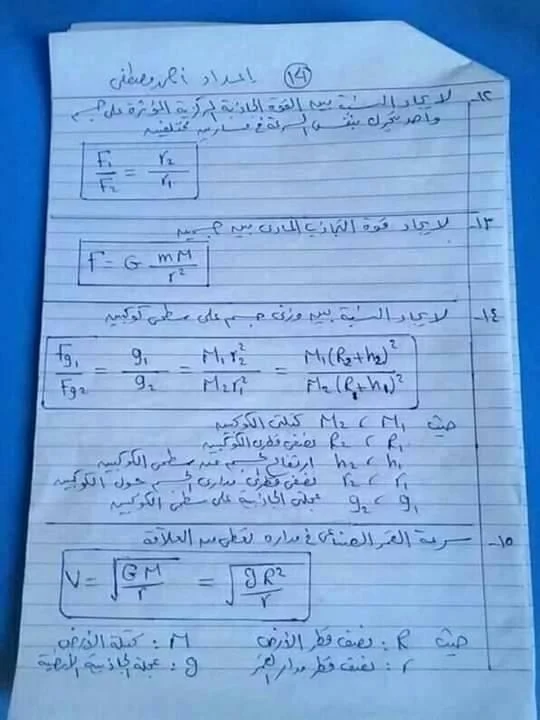 (١٤) إعداد / أحمد مصطفى
١٢- لإيجاد النسبة بين القوة الجاذبة المركزية المؤثرة على جسم
واحد يتحرك بنفس السرعة في مسارين مختلفين
F₁/F₂ = r₂/r₁
١٣- لإيجاد قوة التجاذب المادى بين جسمين
F = G mM/r²
١٤- لإيجاد النسبة بين وزنى جسم على سطحى كوكبين
Fg₁/Fg₂ = g₁/g₂ = M₁r₂²/M₂r₁² = M₁(R₂+h₂)²/M₂(R₁+h₁)²
حيث M₁ ، M₂ كتلتى الكوكبين
R₁ ، R₂ نصف قطرى الكوكبين
h₁ ، h₂ ارتفاع الجسم عن سطحى الكوكبين
r₁ ، r₂ نصف قطرى مدارى الجسم حول الكوكبين
g₁ ، g₂ عجلتى الجاذبية على سطحى الكوكبين
١٥- سرعة القمر الصناعى في مداره تعطى من العلاقة
V = √(GM/r) = √(gR²/r)
حيث R : نصف قطر الأرض M : كتلة الأرض
r : نصف قطر مدار القمر g : عجلة الجاذبية الأرضية